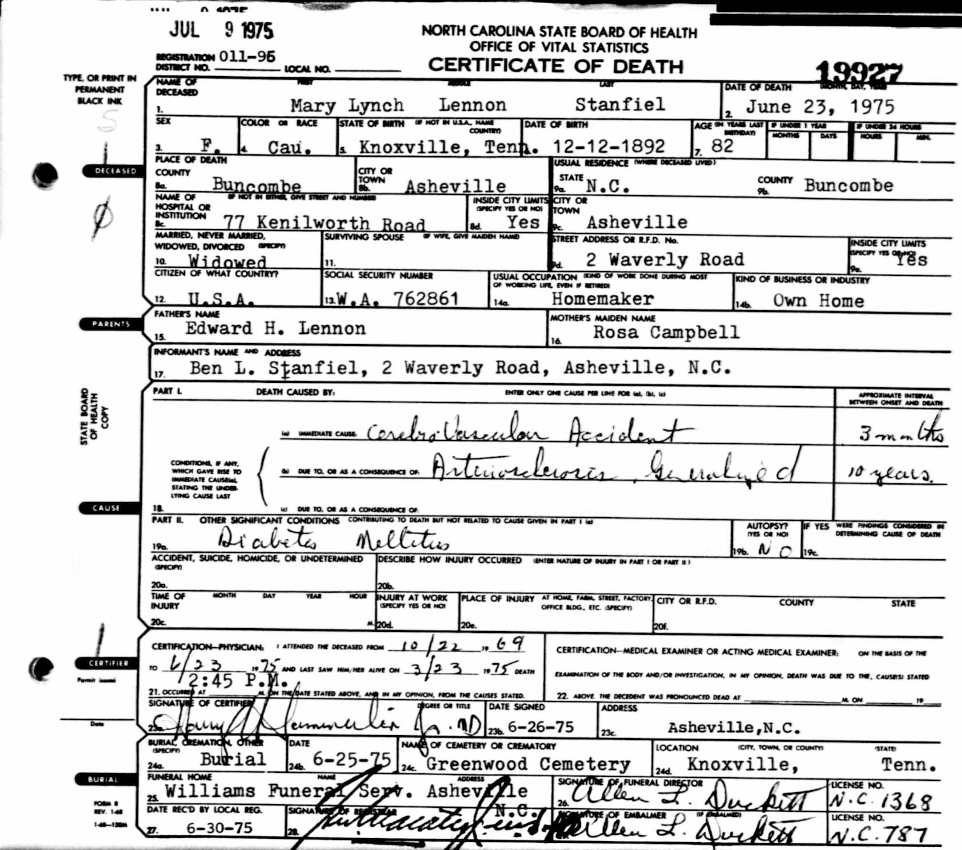 JUL 9 1975
NORTH CAROLINA STATE BOARD OF HEALTH
OFFICE OF VITAL STATISTICS
CERTIFICATE OF DEATH
REGISTRATION DISTRICT NO. 011-96 LOCAL NO.
19927
TYPE, OR PRINT IN PERMANENT BLACK INK
NAME OF DECEASED FIRST MIDDLE LAST DATE OF DEATH (MONTH, DAY, YEAR)
1. Mary Lynch Lennon Stanfiel 2. June 23, 1975
SEX COLOR OR RACE STATE OF BIRTH (IF NOT IN U.S.A., NAME COUNTRY) DATE OF BIRTH AGE (IN YEARS LAST BIRTHDAY) IF UNDER 1 YEAR MONTHS DAYS IF UNDER 24 HOURS HOURS MIN.
3. F. 4. Cau. 5. Knoxville, Tenn. 12-12-1892 7. 82
DECEASED
PLACE OF DEATH USUAL RESIDENCE (WHERE DECEASED LIVED)
COUNTY CITY OR TOWN STATE COUNTY
8a. Buncombe 8b. Asheville 9a. N.C. 9b. Buncombe
NAME OF HOSPITAL OR INSTITUTION (IF NOT IN EITHER, GIVE STREET AND NUMBER) INSIDE CITY LIMITS (SPECIFY YES OR NO) CITY OR TOWN
8c. 77 Kenilworth Road 8d. Yes 9c. Asheville
MARRIED, NEVER MARRIED, WIDOWED, DIVORCED (SPECIFY) SURVIVING SPOUSE (IF WIFE, GIVE MAIDEN NAME) STREET ADDRESS OR R.F.D. No. INSIDE CITY LIMITS (SPECIFY YES OR NO)
10. Widowed 11. 9d. 2 Waverly Road 9e. Yes
CITIZEN OF WHAT COUNTRY? SOCIAL SECURITY NUMBER USUAL OCCUPATION (KIND OF WORK DONE DURING MOST OF WORKING LIFE, EVEN IF RETIRED) KIND OF BUSINESS OR INDUSTRY
12. U.S.A. 13. W.A. 762861 14a. Homemaker 14b. Own Home
PARENTS
FATHER'S NAME MOTHER'S MAIDEN NAME
15. Edward H. Lennon 16. Rosa Campbell
INFORMANT'S NAME AND ADDRESS
17. Ben L. Stanfiel, 2 Waverly Road, Asheville, N.C.
STATE BOARD OF HEALTH COPY
PART I. DEATH CAUSED BY: ENTER ONLY ONE CAUSE PER LINE FOR (a), (b), (c) APPROXIMATE INTERVAL BETWEEN ONSET AND DEATH
(a) IMMEDIATE CAUSE Cerebro Vascular Accident 3 months
CONDITIONS, IF ANY, WHICH GAVE RISE TO IMMEDIATE CAUSE(a), STATING THE UNDERLYING CAUSE LAST
(b) DUE TO, OR AS A CONSEQUENCE OF: Arteriosclerosis, Generalized 10 years.
CAUSE
18. (c) DUE TO, OR AS A CONSEQUENCE OF:
PART II. OTHER SIGNIFICANT CONDITIONS CONTRIBUTING TO DEATH BUT NOT RELATED TO CAUSE GIVEN IN PART I (a) AUTOPSY? (YES OR NO) IF YES WERE FINDINGS CONSIDERED IN DETERMINING CAUSE OF DEATH
19a. Diabetes Mellitus 19b. NO 19c.
ACCIDENT, SUICIDE, HOMICIDE, OR UNDETERMINED (SPECIFY) DESCRIBE HOW INJURY OCCURRED (ENTER NATURE OF INJURY IN PART I OR PART II)
20a. 20b.
TIME OF INJURY MONTH DAY YEAR HOUR INJURY AT WORK (SPECIFY YES OR NO) PLACE OF INJURY AT HOME, FARM, STREET, FACTORY, OFFICE BLDG., ETC. (SPECIFY) CITY OR R.F.D. COUNTY STATE
20c. M. 20d. 20e. 20f.
CERTIFIER
CERTIFICATION—PHYSICIAN: I ATTENDED THE DECEASED FROM 10/22 1969
TO 6/23 1975 AND LAST SAW HIM/HER ALIVE ON 3/23 1975 DEATH
2:45 P.M.
21. OCCURRED AT M. ON THE DATE STATED ABOVE, AND IN MY OPINION, FROM THE CAUSES STATED.
CERTIFICATION—MEDICAL EXAMINER OR ACTING MEDICAL EXAMINER: ON THE BASIS OF THE
EXAMINATION OF THE BODY AND/OR INVESTIGATION, IN MY OPINION, DEATH WAS DUE TO THE, CAUSE(S) STATED
22. ABOVE. THE DECEDENT WAS PRONOUNCED DEAD AT M. ON 19
Permit issued
Date
SIGNATURE OF CERTIFIER DEGREE OR TITLE DATE SIGNED ADDRESS
23a. Jr. MD 23b. 6-26-75 23c. Asheville,N.C.
BURIAL, CREMATION, OTHER (SPECIFY) DATE NAME OF CEMETERY OR CREMATORY LOCATION (CITY, TOWN, OR COUNTY) (STATE)
24a. Burial 24b. 6-25-75 24c. Greenwood Cemetery 24d. Knoxville, Tenn.
BURIAL
FUNERAL HOME NAME ADDRESS SIGNATURE OF FUNERAL DIRECTOR LICENSE NO.
25. Williams Funeral Serv. Asheville N.C. 26. Allen L. Duckett N.C. 1368
FORM 8
REV. 1-68
DATE REC'D BY LOCAL REG. SIGNATURE OF REGISTRAR SIGNATURE OF EMBALMER (IF EMBALMED) LICENSE NO.
27. 6-30-75 28. Allen L. Duckett N.C. 787